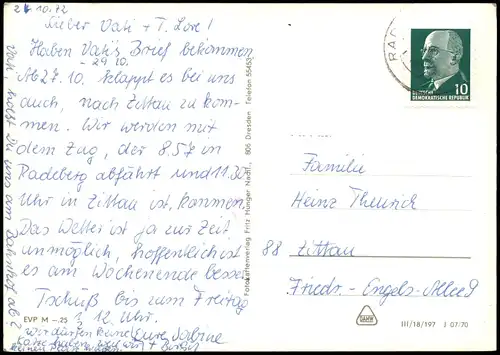 21.10.72
Lieber Vati + T. Lore!
Haben Vatis Brief bekommen.
-29.10.
Ab 27.10. klappt es bei uns
auch, nach Zittau zu kom-
men. Wir werden mit
dem Zug, der 8.57 in
Radeberg abfährt und 11.30
Uhr in Zittau ist, kommen.
Das Wetter ist ja zur Zeit
unmöglich, hoffentlich ist
es am Wochenende besser.
Tschüß bis zum Freitag
12 Uhr
Eure Sabine
wir dürfen keine
+ Birgit
Vati, holst Du uns am Bahnhof ab?
EVP M -.25
Fotokartenverlag Fritz Munger Nachf., 806 Dresden Telefon 55452
10
DEUTSCHE
DEMOKRATISCHE REPUBLIK
Familie
Heinz
88 Zittau
Friedr.-Engels-Allee 9
III/18/197 J 07/70